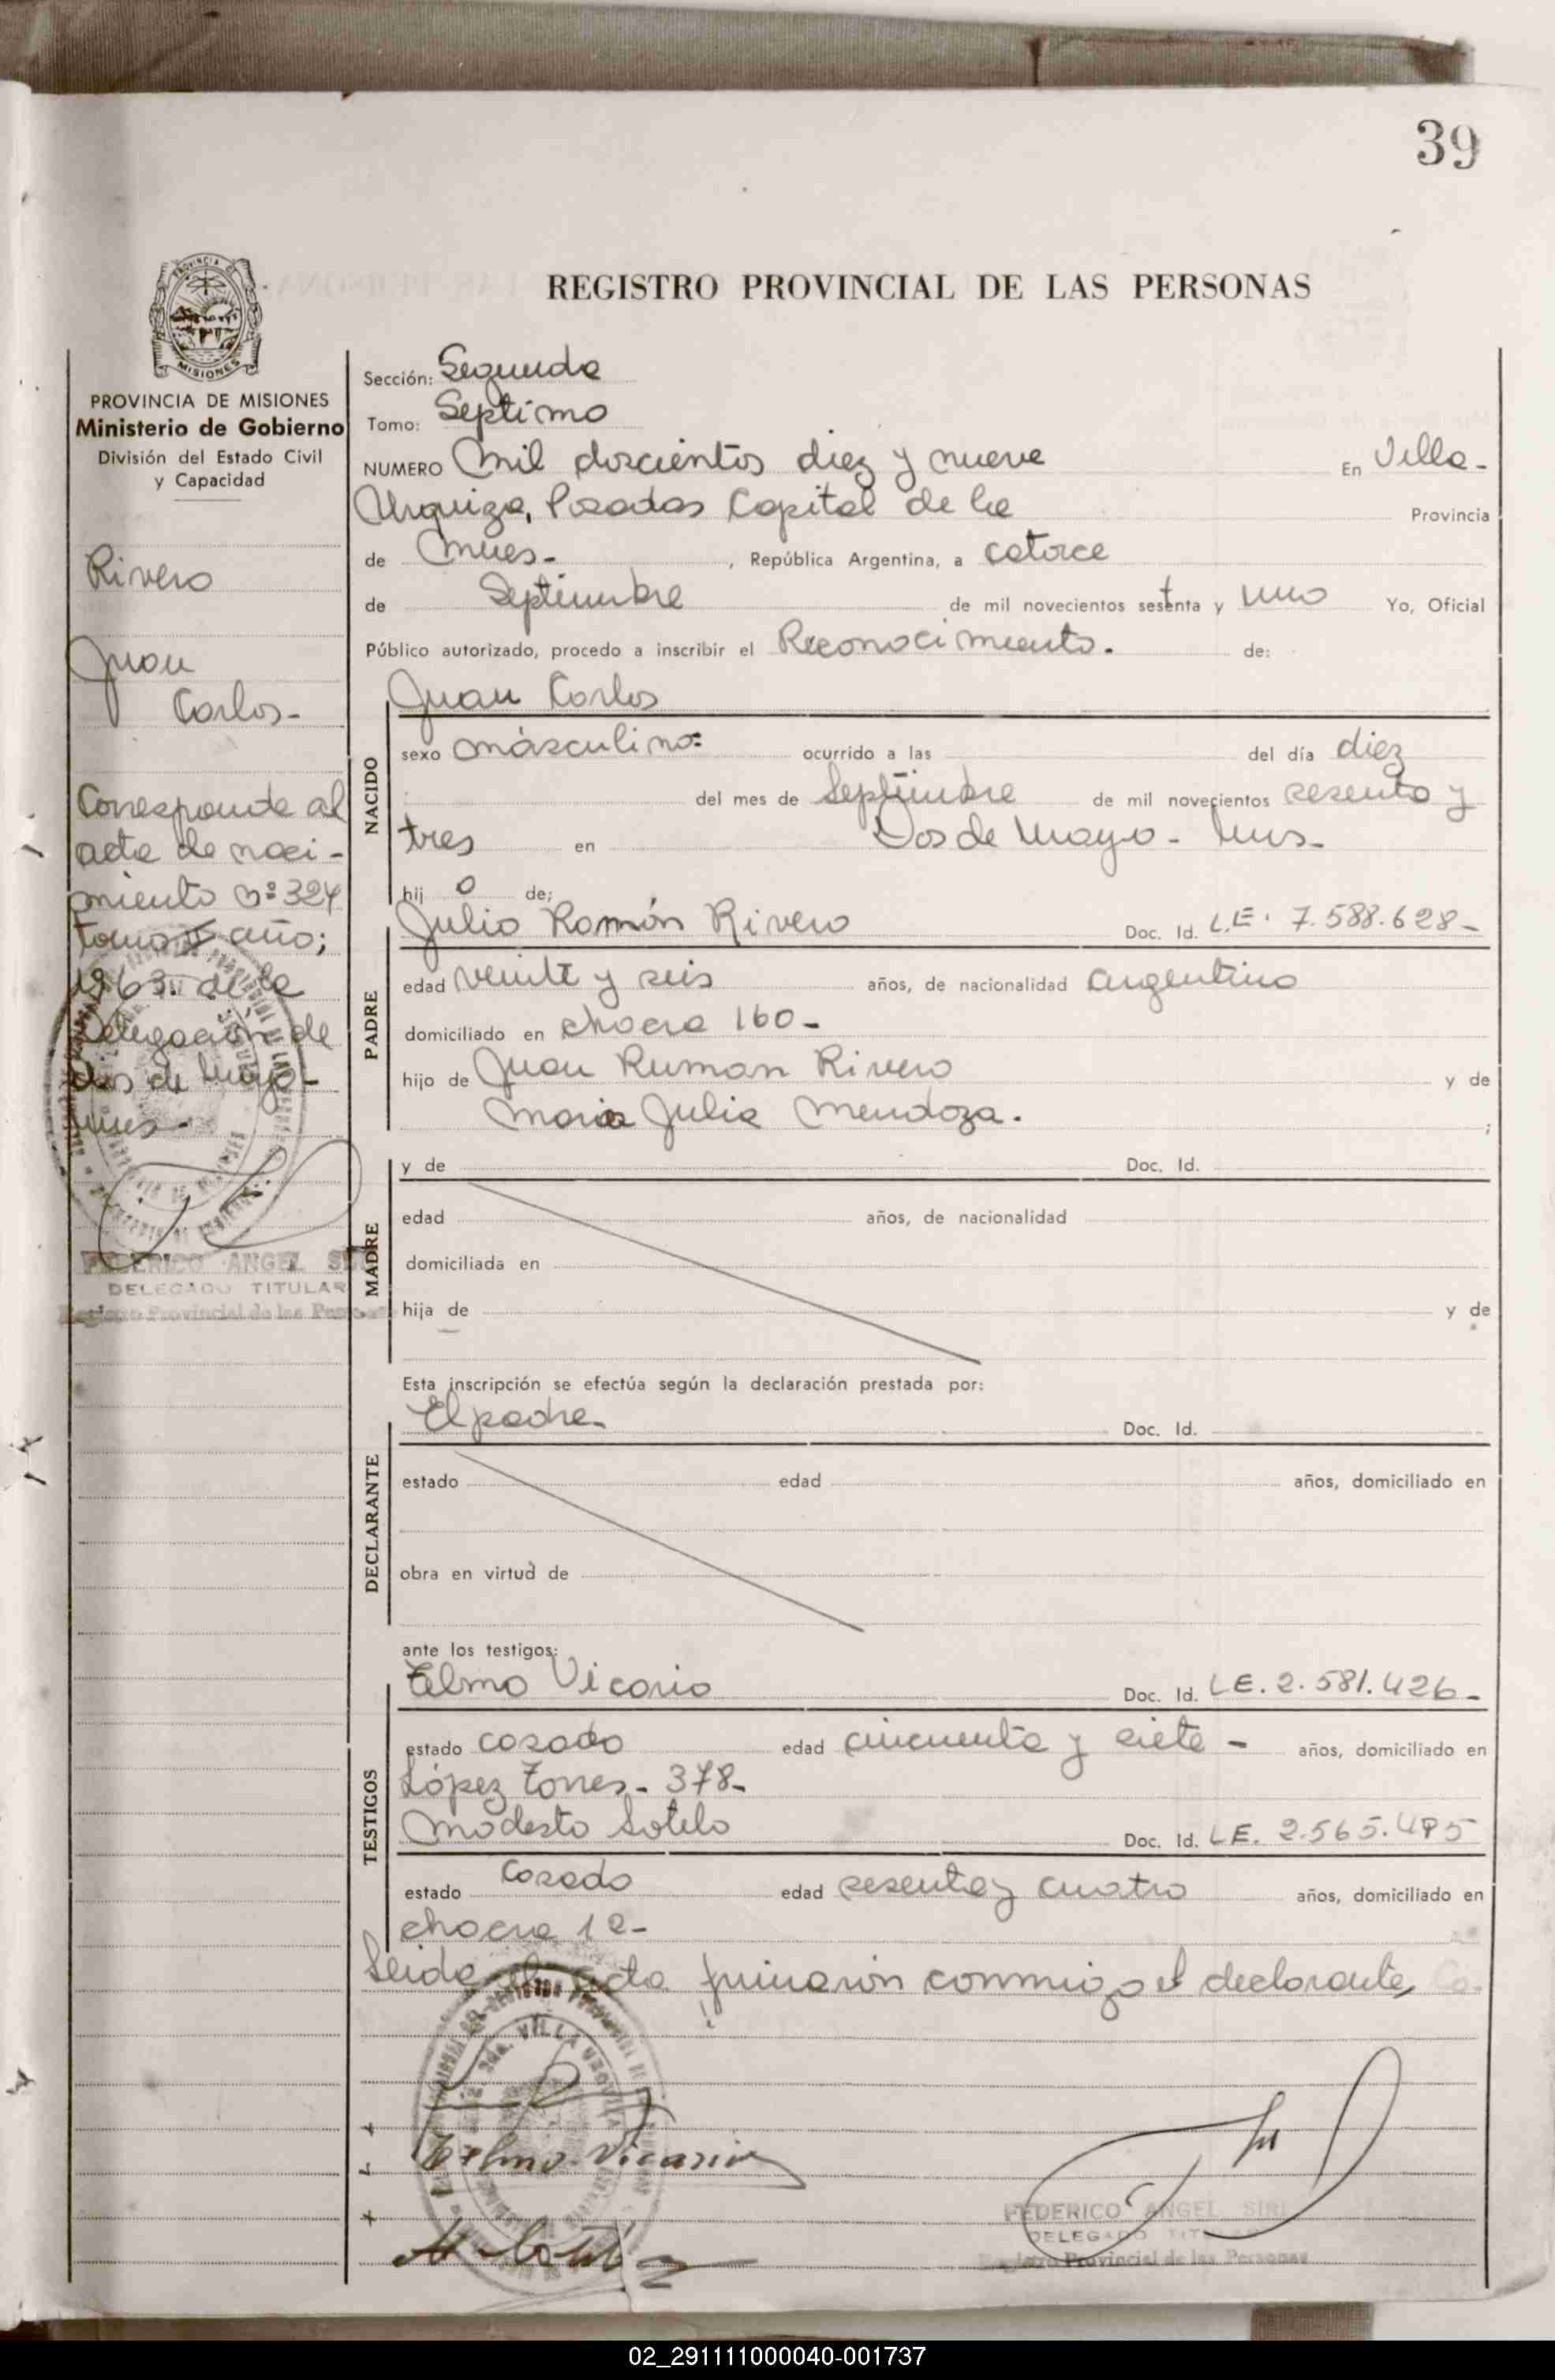 39
REGISTRO PROVINCIAL DE LAS PERSONAS
PROVINCIA DE
MISIONES
PROVINCIA DE MISIONES
Ministerio de Gobierno
División del Estado Civil
y Capacidad
Rivero
Juan
Carlos-
Corresponde al
acta de naci-
miento nº 324
tomo II año;
1963. de la
Delegación de
dos de Mayo-
mnes-
FEDERICO ANGEL
DELEGADO TITULAR
Registro Provincial de las Personas
Sección: Segunda
Tomo: Septimo
NUMERO Mil doscientos diez y nueve En Villa-
Urquiza, Posadas Capital de la Provincia
de Mnes- , República Argentina, a catorce
de Septiembre de mil novecientos setenta y uno Yo, Oficial
Público autorizado, procedo a inscribir el Reconocimiento. de:
Juan Carlos
NACIDO
sexo másculino= ocurrido a las del día diez
del mes de Septiembre de mil novecientos sesenta y
tres en Dos de Mayo - Mns-
hij o de;
PADRE
Julio Román Rivero Doc. Id. L.E. 7.588.628-
edad veinte y seis años, de nacionalidad argentino
domiciliado en chacra 160-
hijo de Juan Ruman Rivero y de
Maria Julia Mendoza. ;
MADRE
y de Doc. Id.
edad años, de nacionalidad
domiciliada en
hija de y de
Esta inscripción se efectúa según la declaración prestada por:
DECLARANTE
El padre- Doc. Id.
estado edad años, domiciliado en
obra en virtud de
ante los testigos:
TESTIGOS
Telmo Vicario Doc. Id. LE. 2.581.426-
estado casado edad cincuenta y siete - años, domiciliado en
López Torres- 378-
Modesto Sotelo Doc. Id. LE. 2.565.495
estado casado edad sesenta y cuatro años, domiciliado en
chacra 12-
Leida el acta firmaron conmigo el declarante,
Telmo Vicario
FEDERICO ANGEL SIRI
DELEGADO TIT
Registro Provincial de las Personas
02_291111000040-001737